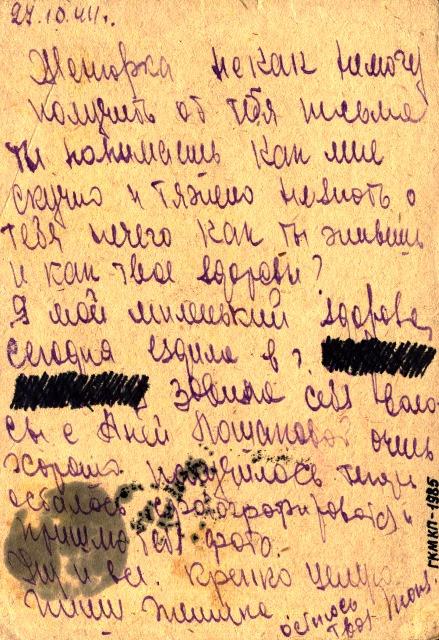 27.10.41г.
Женюрка некак немогу
получить от тебя письма
ты понимаешь как мне
скучно и тяжело незнать о
тебе нечего как ты живешь
и как твое здоровье?
Я мой миленький здорова,
сегодня ездила в г.
завила себе воло-
сы с Аней Пошатовой очень
хорошо получилось теперь
осталось сфотографироватся и
пришлю тебе фото.
Ну и все. Крепко целую
Пиши
остаюсь
твоя Тоня.
ГКМКП-1985